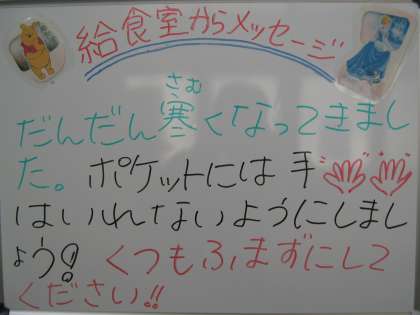 給食室からメッセージ
だんだん寒くなってきまし
た。ポケットには手
はいれないようにしまし
ょう！くつもふまずにして
ください!!